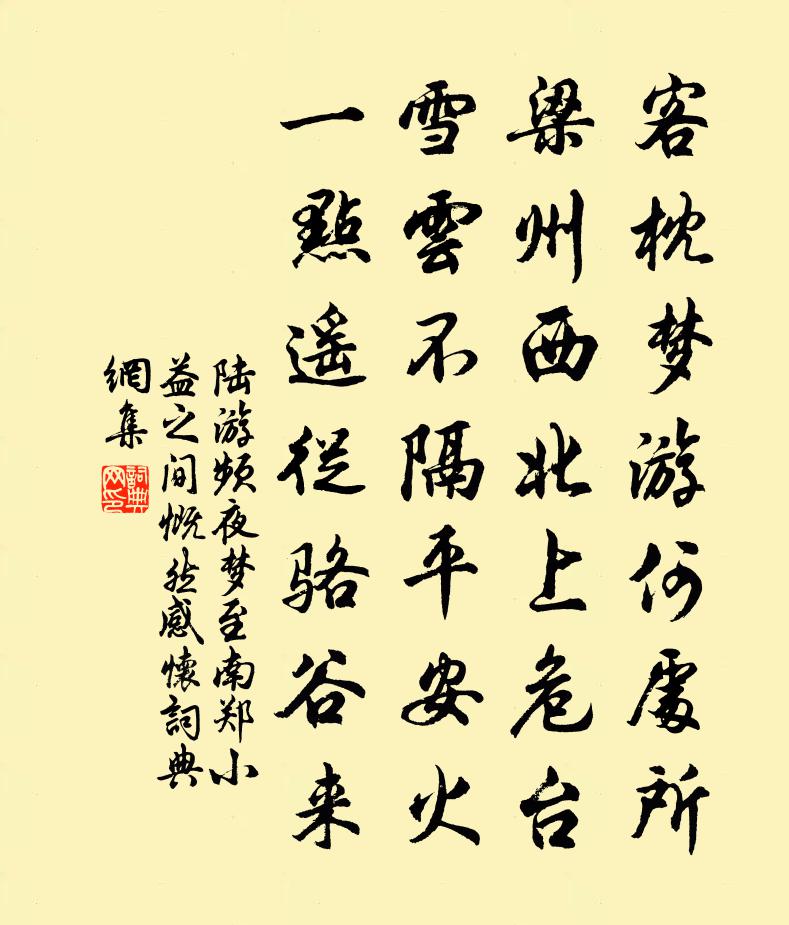 客枕梦游何處所
梁州西北上危台
雪雲不隔平安火
一點遥從骆谷来
陆游频夜梦至南郑小
益之间慨然感懷詞典
網集
詞典
网印